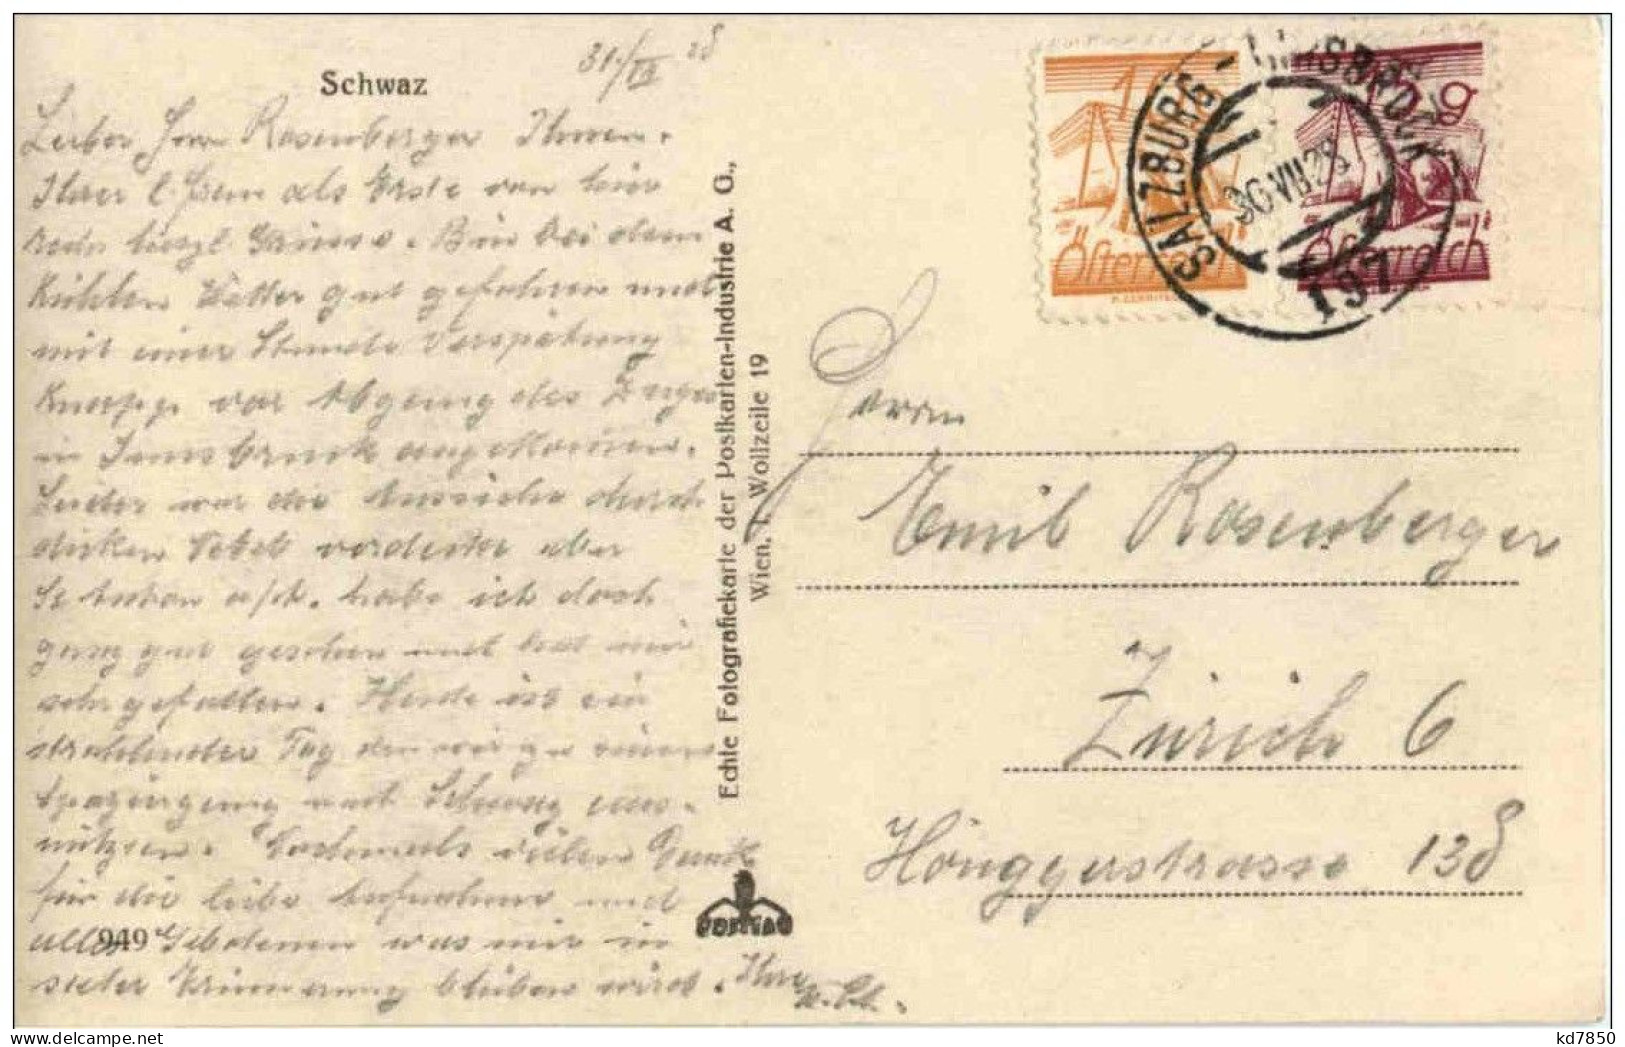 Schwaz
31./VII 28
Lieber Herr Rosenberger Ihnen
Ihrer l. Frau als Erste von hier
recht herzl. Grüsse. Bin bei dem
kühlen Wetter gut gefahren und
mit einer Stunde Verspätung
knapp vor Abgang des Zuges
in Innsbruck angekommen.
Leider war die Aussicht durch
dicken Nebel verdeckt aber
St Anton a/A. habe ich doch
ganz gut gesehen und hat mir
sehr gefallen. Heute ist ein
strahlender Tag den wir zu einem
Spaziergang nach Schwaz aus-
nützen. Nochmals vielen Dank
für die liebe Aufnahme und
alles Gebotenen was mir in
steter Erinnerung bleiben wird. Ihre
949
Echte Fotografiekarte der Postkarten-Industrie A. G.,
Wien, I. Wollzeile 19
POSTIAG
SALZBURG - INNSBRUCK
30.VII.28
197
1
g
Österreich
Österreich
Herrn
Emil Rosenberger
Zürich 6
Hönggerstrasse 138
delcampe.net
kd7850